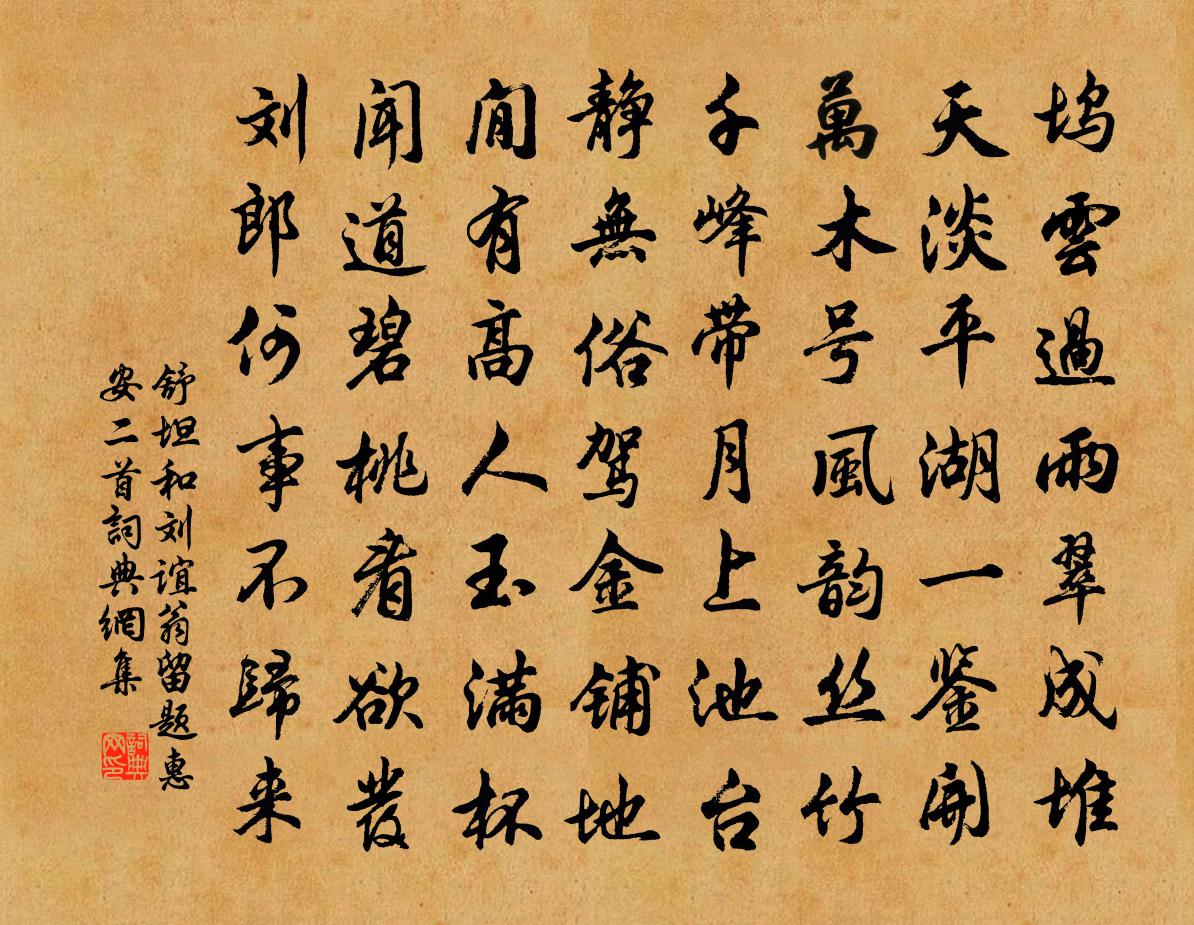 坞雲過雨翠成堆
天淡平湖一鉴開
萬木号風韵丝竹
千峰带月上池台
静無俗驾金铺地
閒有高人玉满杯
闻道碧桃看欲發
刘郎何事不歸来
舒坦和刘谊翁留题惠
安二首詞典網集
詞典
网印